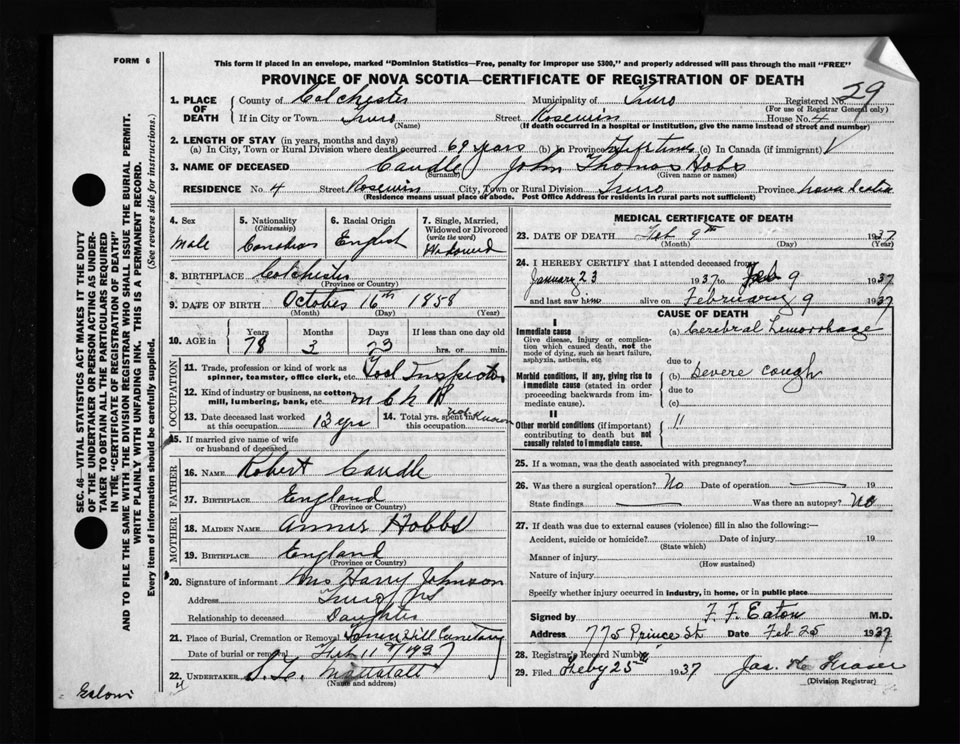 FORM 6
This form if placed in an envelope, marked "Dominion Statistics—Free, penalty for improper use $300," and properly addressed will pass through the mail "FREE"
PROVINCE OF NOVA SCOTIA—CERTIFICATE OF REGISTRATION OF DEATH
1. PLACE OF DEATH County of Colchester Municipality of Truro Registered No. 29
(For use of Registrar General only)
If in City or Town Truro Street House No. 4
(Name) (If death occurred in a hospital or institution, give the name instead of street and number)
2. LENGTH OF STAY (in years, months and days)
(a) In City, Town or Rural Division where death occurred 69 years (b) in Province Lifetime (c) In Canada (if immigrant)
3. NAME OF DECEASED Caudle John Thomas Hobs
(Surname) (Given name or names)
RESIDENCE No. 4 Street City, Town or Rural Division Truro Province Nova Scotia
(Residence means usual place of abode. Post Office Address for residents in rural parts not sufficient)
4. Sex Male
5. Nationality (Citizenship) Canadian
6. Racial Origin English
7. Single, Married, Widowed or Divorced (write the word) Widowed
8. BIRTHPLACE Colchester
(Province or Country)
9. DATE OF BIRTH October 16th 1858
(Month) (Day) (Year)
10. AGE in Years 78 Months 3 Days 23 If less than one day old hrs. or min.
OCCUPATION
11. Trade, profession or kind of work as spinner, teamster, office clerk, etc. Tool Inspector
12. Kind of industry or business, as cotton mill, lumbering, bank, etc.
13. Date deceased last worked at this occupation 13 yrs
14. Total yrs. spent in this occupation not known
15. If married give name of wife or husband of deceased
FATHER
16. NAME Robert Caudle
17. BIRTHPLACE England
(Province or Country)
MOTHER
18. MAIDEN NAME Annie Hobbs
19. BIRTHPLACE England
(Province or Country)
20. Signature of informant Mrs Harry Johnson
Address Truro NS
Relationship to deceased Daughter
21. Place of Burial, Cremation or Removal Cemetary
Date of burial or removal Feb 11th 1937
22. UNDERTAKER
(Name and address)
MEDICAL CERTIFICATE OF DEATH
23. DATE OF DEATH Feb 9th 1937
(Month) (Day) (Year)
24. I HEREBY CERTIFY that I attended deceased from
January 23 1937 to Feb 9 1937
and last saw him alive on February 9 1937
CAUSE OF DEATH
I
Immediate cause (a) Cerebral hemorrhage
Give disease, injury or complication which caused death, not the mode of dying, such as heart failure, asphyxia, asthenia, etc
due to
Morbid conditions, if any, giving rise to immediate cause (stated in order proceeding backwards from immediate cause). (b) Severe cough
due to
(c)
II
Other morbid conditions (if important) contributing to death but not causally related to immediate cause. "
25. If a woman, was the death associated with pregnancy?
26. Was there a surgical operation? No Date of operation 19
State findings Was there an autopsy? No
27. If death was due to external causes (violence) fill in also the following:—
Accident, suicide or homicide? Date of injury 19
(State which)
Manner of injury
(How sustained)
Nature of injury
Specify whether injury occurred in industry, in home, or in public place
Signed by F. F. Eaton M.D.
Address 775 Prince St Date Feb 25 1937
28. Registrar's Record Number
29. Filed Feby 25th 1937 Jas. Fraser
(Division Registrar)
SEC. 46—VITAL STATISTICS ACT MAKES IT THE DUTY
OF THE UNDERTAKER OR PERSON ACTING AS UNDER-
TAKER TO OBTAIN ALL THE PARTICULARS REQUIRED
IN THE "CERTIFICATE OF REGISTRATION OF DEATH"
AND TO FILE THE SAME WITH THE DIVISION REGISTRAR WHO SHALL ISSUE THE BURIAL PERMIT.
WRITE PLAINLY WITH UNFADING INK. THIS IS A PERMANENT RECORD.
Every item of information should be carefully supplied. (See reverse side for instructions.)